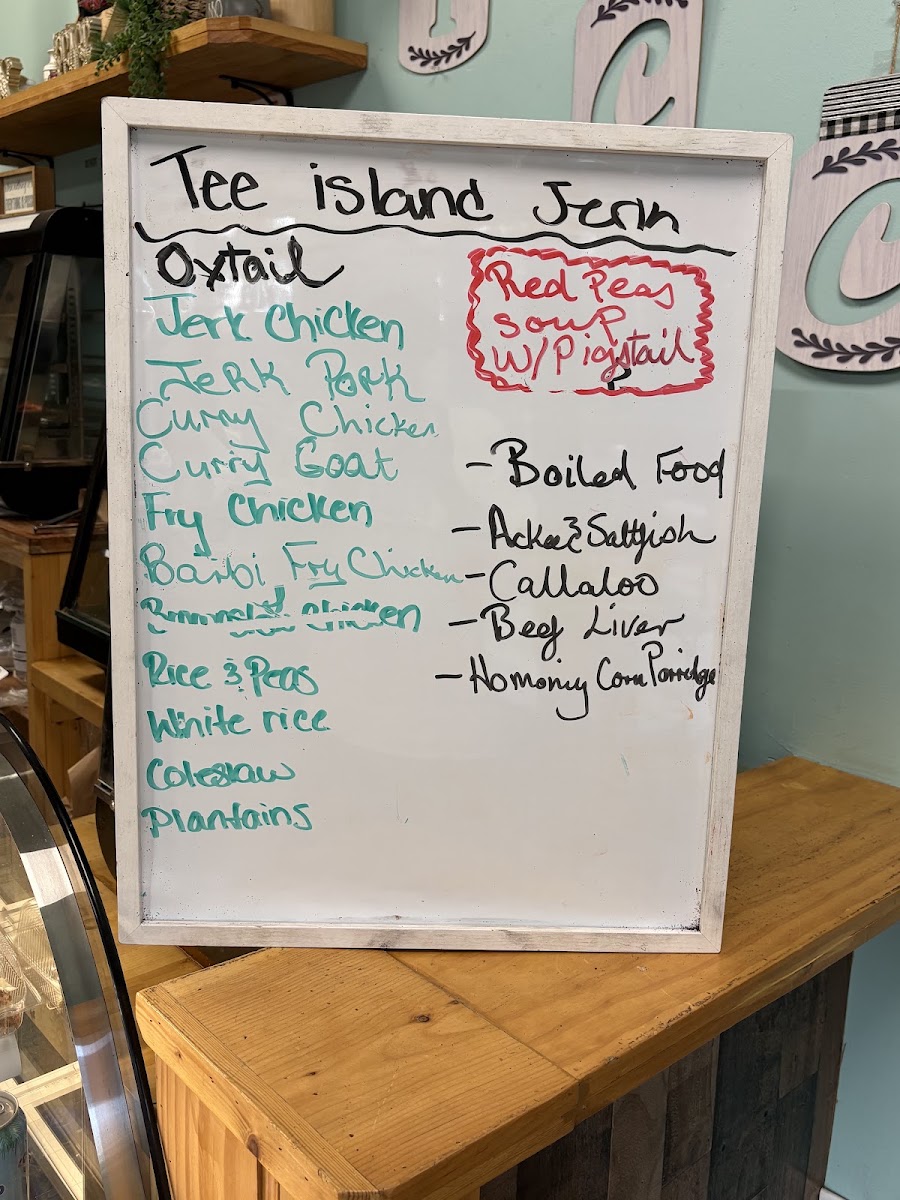 Tee island Jerk
Oxtail
Jerk Chicken
Jerk Pork
Curry Chicken
Curry Goat
Fry Chicken
Barbi Fry Chicken
Chicken
Rice & Peas
White rice
Coleslaw
Plantains
Red Peas
soup
w/Pigstail
- Boiled Food
- Ackee & Saltfish
- Callaloo
- Beef Liver
- Homoniy Corn Porridge